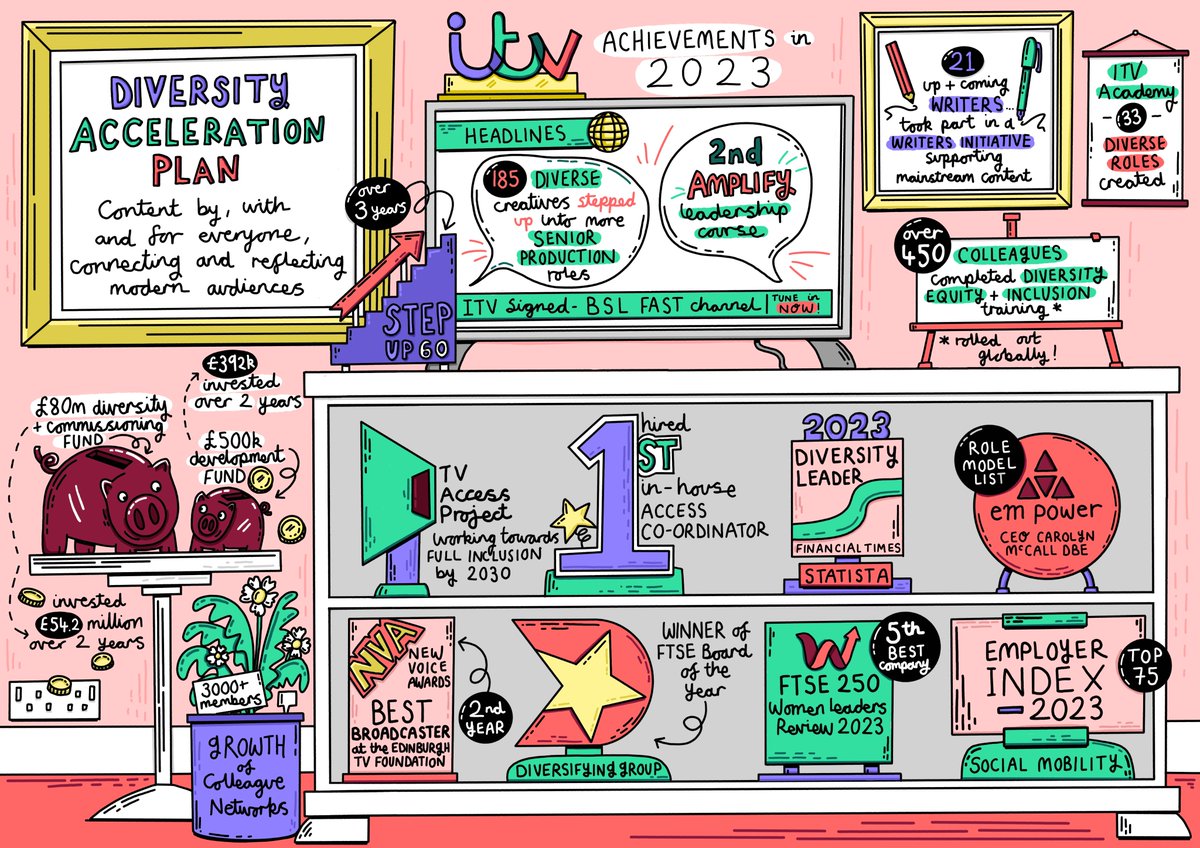 DIVERSITY
ACCELERATION
PLAN
Content by, with
and for everyone,
connecting and reflecting
modern audiences
itv
ACHIEVEMENTS in
2023
over
3 years
STEP
UP 60
HEADLINES
185 DIVERSE
creatives stepped
up into more
SENIOR
PRODUCTION
roles
2nd
AMPLIFY
leadership
course
ITV Signed - BSL FAST channel
TUNE in
NOW!
21
up + coming
WRITERS...
took part in a
WRITERS INITIATIVE
supporting
mainstream content
ITV
Academy
33
DIVERSE
ROLES
created
over
450 COLLEAGUES
completed DIVERSITY
EQUITY + INCLUSION
training *
* rolled out
globally!
£392k
invested
over 2 years
£80m diversity
+ commissioning
FUND
£500k
development
FUND
invested
£54.2 million
over 2 years
3000+
members
GROWTH
of
Colleague
Networks
TV
Access
Project
working towards
FULL INCLUSION
by 2030
hired
1ST
in-house
ACCESS
CO-ORDINATOR
2023
DIVERSITY
LEADER
FINANCIAL TIMES
STATISTA
ROLE
MODEL
LIST
em power
CEO CAROLYN
McCALL DBE
NVA
NEW
VOICE
AWARDS
BEST
BROADCASTER
at the EDINBURGH
TV FOUNDATION
2nd
YEAR
WINNER of
FTSE Board
of the
Year
DIVERSIFYING GROUP
5th
BEST
company
FTSE 250
Women leaders
Review 2023
EMPLOYER
INDEX
- 2023
TOP
75
SOCIAL MOBILITY